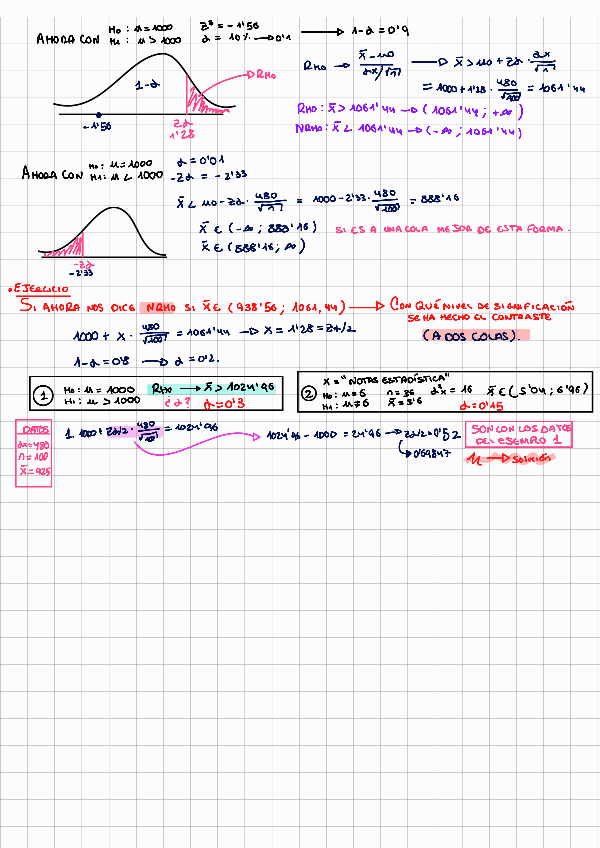 AHORA CON H₀: μ = 1000 Z* = -1'56
H₁: μ > 1000 α = 10% → 0'1 → 1-α = 0'9
1-α
RH₀
-1'56
Zα
1'28
RH₀ → (x̄ - μ₀)/(σx/√n) → x̄ > μ₀ + Zα · σx/√n
= 1000 + 1'28 · 480/√100 = 1061'44
RH₀: x̄ > 1061'44 → (1061'44; +∞)
NRH₀: x̄ < 1061'44 → (-∞; 1061'44)
AHORA CON H₀: μ = 1000 α = 0'01
H₁: μ < 1000 -Zα = -2'33
x̄ < μ₀ - Zα · 480/√n = 1000 - 2'33 · 480/√100 = 888'16
x̄ ∈ (-∞; 888'16) SI ES A UNA COLA MEJOR DE ESTA FORMA.
x̄ ∈ (888'16; ∞)
-Zα
-2'33
• EJERCICIO
SI AHORA NOS DICE NRH₀ SI x̄ ∈ (938'56; 1061,44) → CON QUÉ NIVEL DE SIGNIFICACIÓN
SE HA HECHO EL CONTRASTE
(A DOS COLAS).
1000 + x · 480/√100 = 1061'44 → x = 1'28 = Zα/2
1-α = 0'8 → α = 0'2.
① H₀: μ = 1000 RH₀ → x̄ > 1024'96
H₁: μ > 1000 ¿α? α = 0'3
② X = "NOTAS ESTADÍSTICA"
H₀: μ = 6 n = 36 σ²x = 16 x̄ ∈ (5'04; 6'96)
H₁: μ ≠ 6 x̄ = 5'6
α = 0'15
DATOS
σx = 480
n = 100
x̄ = 925
1. 1000 + Zα/2 · 480/√100 = 1024'96
1024'96 - 1000 = 24'96 → Zα/2 = 0'52
→ 0'69847
SON CON LOS DATOS
DEL EJEMPLO 1
→ solución